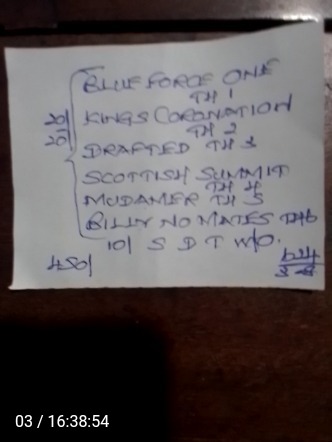 BLUE FORCE ONE
TH 1
KINGS CORONATION
TH 2
DRAFTED TH 3
SCOTTISH SUMMIT
TH 4
MUDAMER TH 5
BILLY NO MATES TH 6
10/ S D T W/O.
20/20
450/
03 / 16:38:54